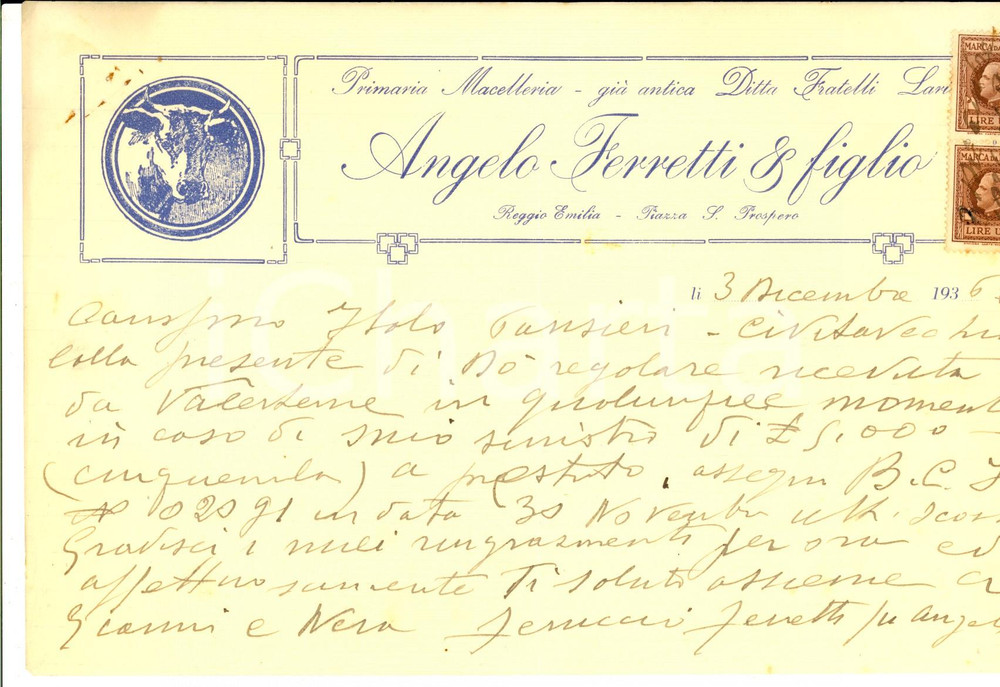 Primaria Macelleria - già antica Ditta Fratelli Lari
Angelo Ferretti & figlio
Reggio Emilia - Piazza S. Prospero
MARCA DA
LIRE
MARCA DA
LIRE U
li 3 Dicembre 1936
Carissimo Italo Pansieri - Civitavecchia
Colla presente di Dò regolare ricevuta
da Valertene in qualunque moment
in caso di mio sinistro di £ 5,000
(cinquemila) a prestito, assegn B.C.I
N° 02091 in data 30 Novembre ult. scor
Gradisci i miei ringraziamenti per ora ed
affettuosamente Ti saluto assieme a
Gianni e Nera Ferruccio Ferretti fu Angelo
iCharta